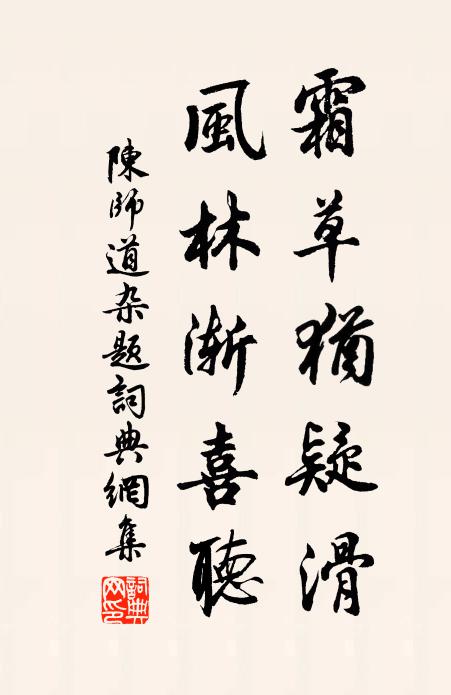 霜草猶疑滑
風林漸喜聽
陳師道杂題詞典網集
詞典
网印